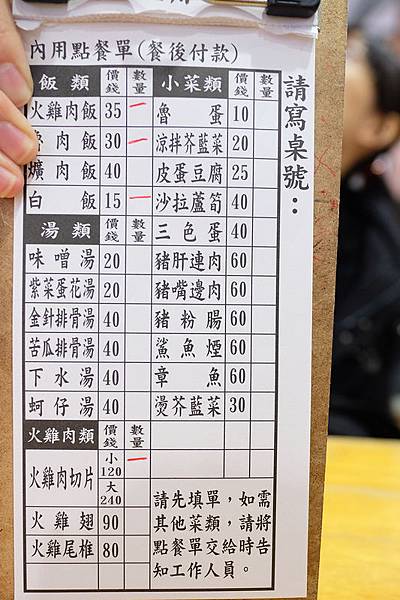 內用點餐單(餐後付款)
請寫桌號：
飯類 價錢 數量
火雞肉飯 35 一
肉飯 30 一
爌肉飯 40
白飯 15 一
湯類 價錢 數量
味噌湯 20
紫菜蛋花湯 20
金針排骨湯 40
苦瓜排骨湯 40
下水湯 40
蚵仔湯 40
火雞肉類 價錢 數量
火雞肉切片 小120 一
大240
火雞翅 90
火雞尾椎 80
小菜類 價錢 數量
魯蛋 10
涼拌芥藍菜 20
皮蛋豆腐 25
沙拉蘆筍 40
三色蛋 40
豬肝連肉 60
豬嘴邊肉 60
豬粉腸 60
鯊魚煙 60
章魚 60
燙芥藍菜 30
請先填單，如需
其他菜類，請將
點餐單交給時告
知工作人員。